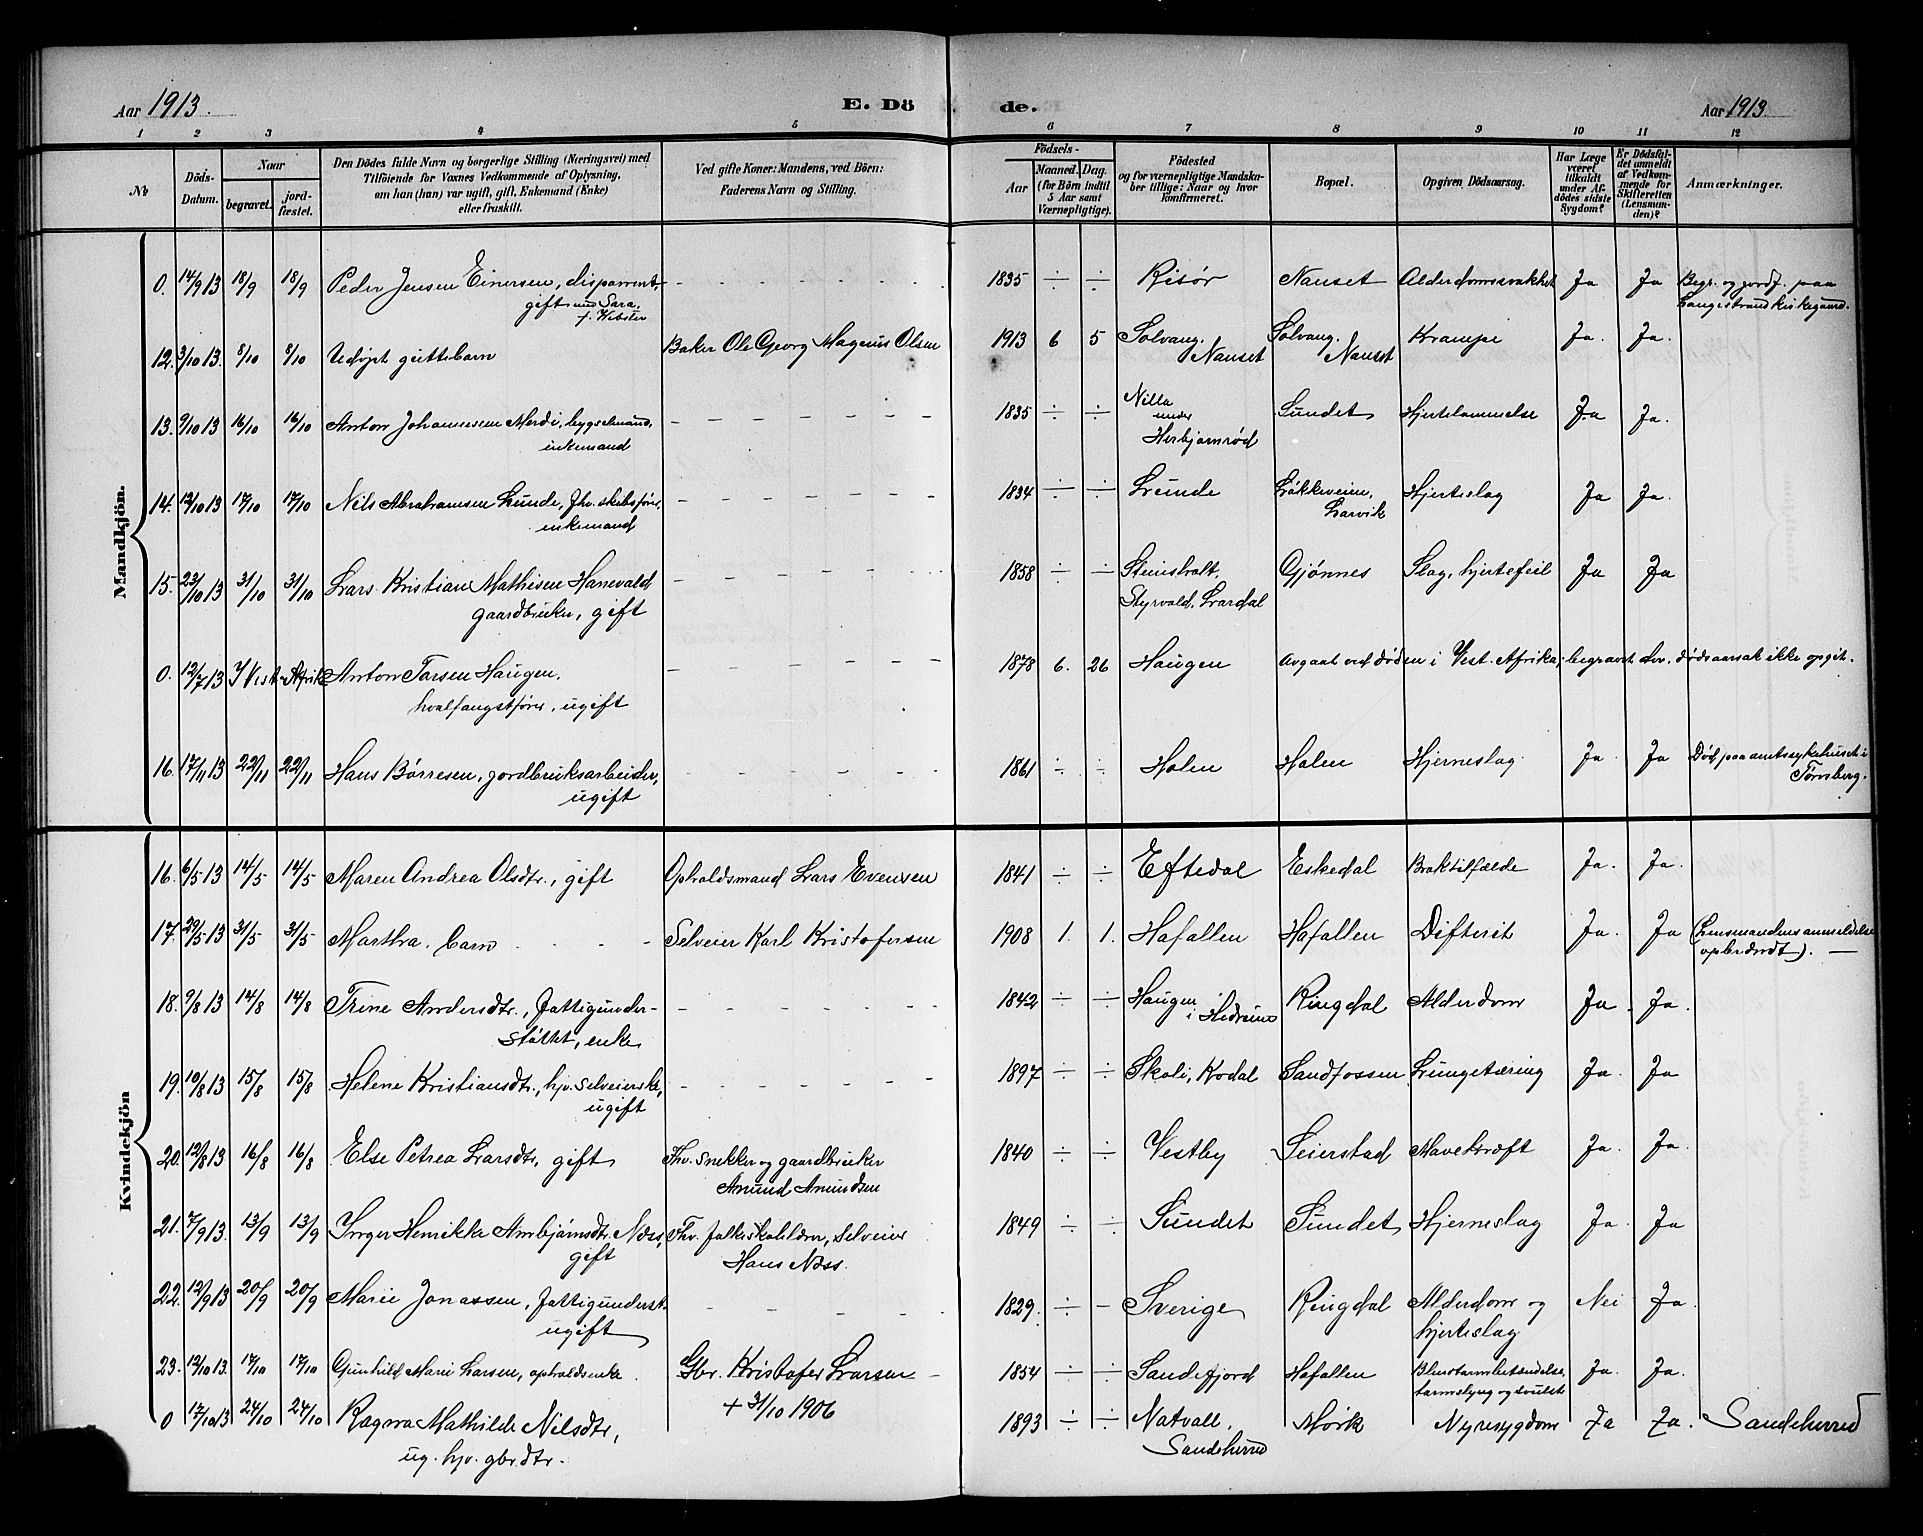 Aar 1913.
E. Dö
de.
Aar 1913.
1 2 3 4 5 6 7 8 9 10 11 12
No
Döds-Datum.
Naar
begravet.
jord-fæstet.
Den Dödes fulde Navn og borgerlige Stilling (Næringsvei) med
Tilföiende for Voxnes Vedkommende af Oplysning,
om han (hun) var ugift, gift, Enkemand (Enke)
eller fraskilt.
Ved gifte Koner: Mandens, ved Börn:
Faderens Navn og Stilling.
Födsels-
Aar
Maaned. Dag.
(for Börn indtil
5 Aar samt
Værnepligtige).
Födested
og for værnepligtige Mandska-
ber tillige: Naar og hvor
konfirmeret.
Bopæl.
Opgiven Dödsaarsag.
Har Læge
været
tilkaldt
under Af-
dödes sidste
Sygdom?
Er Dödsfal-
det anmeldt
af Vedkom-
mende for
Skifteretten
(Lensman-
den)?
Anmærkninger.
Mandkjön.
0. 14/9 13 18/9 18/9 Peder Jensen Einersen, disponent, 1835 ÷ ÷ Risör Nanset Alderdomssvakhet Ja Ja Begr. og jordf. paa
gift med Sara, Langestrand kirkegaard.
f. Webster
12. 3/10 13. 8/10 8/10 Udöpt guttebarn Baker Ole Georg Magnus Olsen 1913 6 5 Solvang, Solvang, Krampe Ja. Ja.
Nanset Nanset
13. 9/10 13 16/10 16/10 Anton Johannessen Merdi, bygselmand, 1835 ÷ ÷ Nilla Sundet Hjertelammelse Ja Ja.
enkemand under
Herbjørnrød
14. 12/10 13 17/10 17/10 Nils Abrahamsen Lunde, fhv. skibsfører, 1834 ÷ ÷ Lunde Løkkeveien, Hjerteslag Ja Ja.
enkemand Larvik
15. 23/10 13 31/10 31/10 Lars Kristian Mathisen Hanevald 1858 ÷ ÷ Steinsholt, Gjønnes Slag, hjertefeil Ja Ja
gaardbruker, gift Styrvold, Lardal
0. 12/7 13 I Vest-Afrika Anton Torsen Haugen, 1878 6. 26 Haugen Avgaat ved døden i Vest-Afrika, begravet der. Dødsaarsak ikke opgit.
hvalfangstfører, ugift
16. 17/11 13 22/11 22/11 Hans Børresen, jordbruksarbeider, 1861 ÷ ÷ Holen Holen Hjerneslag Ja. Ja Død paa amtssykehuset i
ugift Tønsberg.
Kvindekjön
16. 6/5 13 14/5 14/5 Maren Andrea Olsdtr., gift Opholdsmand Lars Evensen 1841 ÷ ÷ Eftedal Eskedal Ja. Ja.
17. 29/5 13 31/5 31/5 Martha, barn Selveier Karl Kristofersen 1908 1. 1. Hafallen Hafallen Difterit Ja. Ja (Lensmandens anmeldelse
opbrændt).
18. 9/8 13 14/8 14/8 Trine Andersdtr., fattigunder- 1842 ÷ ÷ Haugen Ringdal Alderdom Ja. Ja.
støttet, enke i Hedrum
19. 10/8 13 15/8 15/8 Helene Kristiansdtr., hjv. selveierske, 1897 ÷ ÷ Skoli, Kodal Sandfossen Lungetæring Ja. Ja
ugift
20. 12/8 13 16/8 16/8 Else Petrea Larsdtr., gift Fhv. snekker og gaardbruker 1840 ÷ ÷ Vestby Seierstad Mavekræft Ja. Ja.
Amund Amundsen
21. 7/9 13. 13/9 13/9 Inger Henrikke Arnbjørnsdtr. Næss, Fhv. folkeskolelærer, selveier 1849 ÷ ÷ Sundet Sundet Hjerneslag Ja. Ja
gift Hans Næss.
22. 12/9 13 20/9 20/9 Marie Jonassen, fattigunderst. 1829. ÷ - Sverige Ringdal Alderdom og Nei Ja.
ugift hjerteslag
23. 12/10 13. 17/10 17/10 Gunhild Marie Larsen, opholdsenke. Gbr. Kristofer Larsen 1854 ÷ ÷ Sandefjord Hafallen Blindtarmbetændelse, Ja. Ja.
+ 31/10 1906 tarmslyng og svulst
0 17/10 13 24/10 24/10 Ragna Mathilde Nilsdtr., 1893 ÷ ÷ Natvall, Mørk Nyresygdom Ja Ja. Sandeherred
ug. hjv. gbr.dtr. Sandeherred